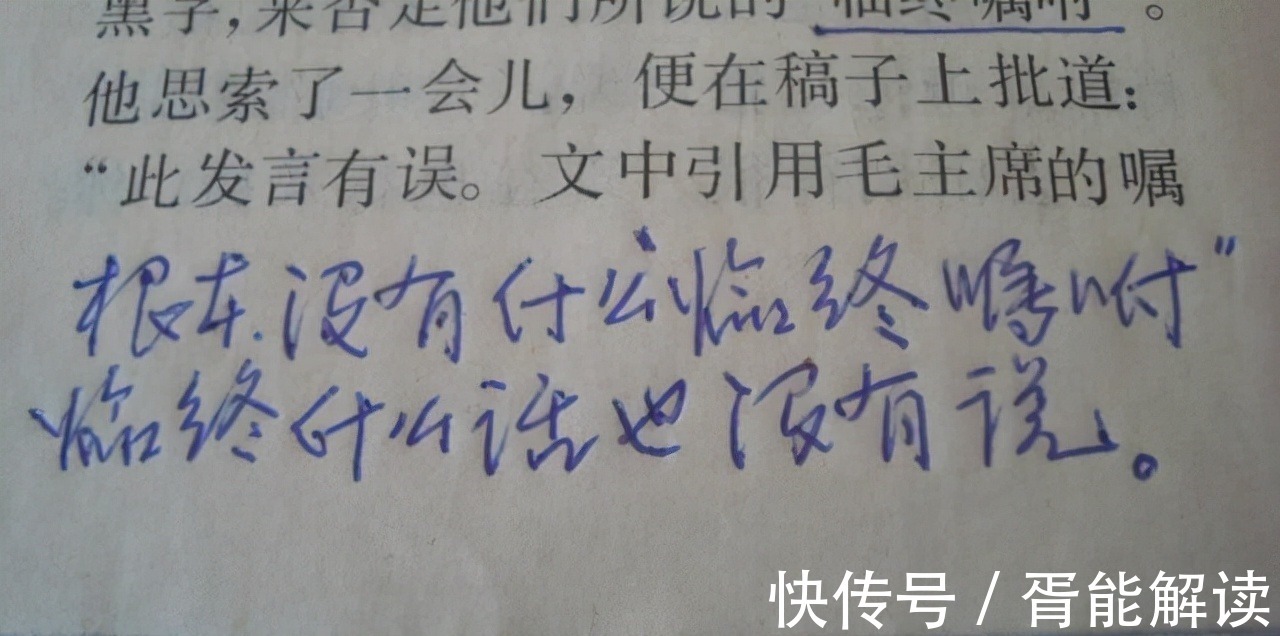 黑字,来否定他们所说的“临终嘱咐”。
他思索了一会儿，便在稿子上批道：
“此发言有误。文中引用毛主席的嘱
根本没有什么临终嘱咐”
临终什么话也没有说。
快传号 / 胥能解读